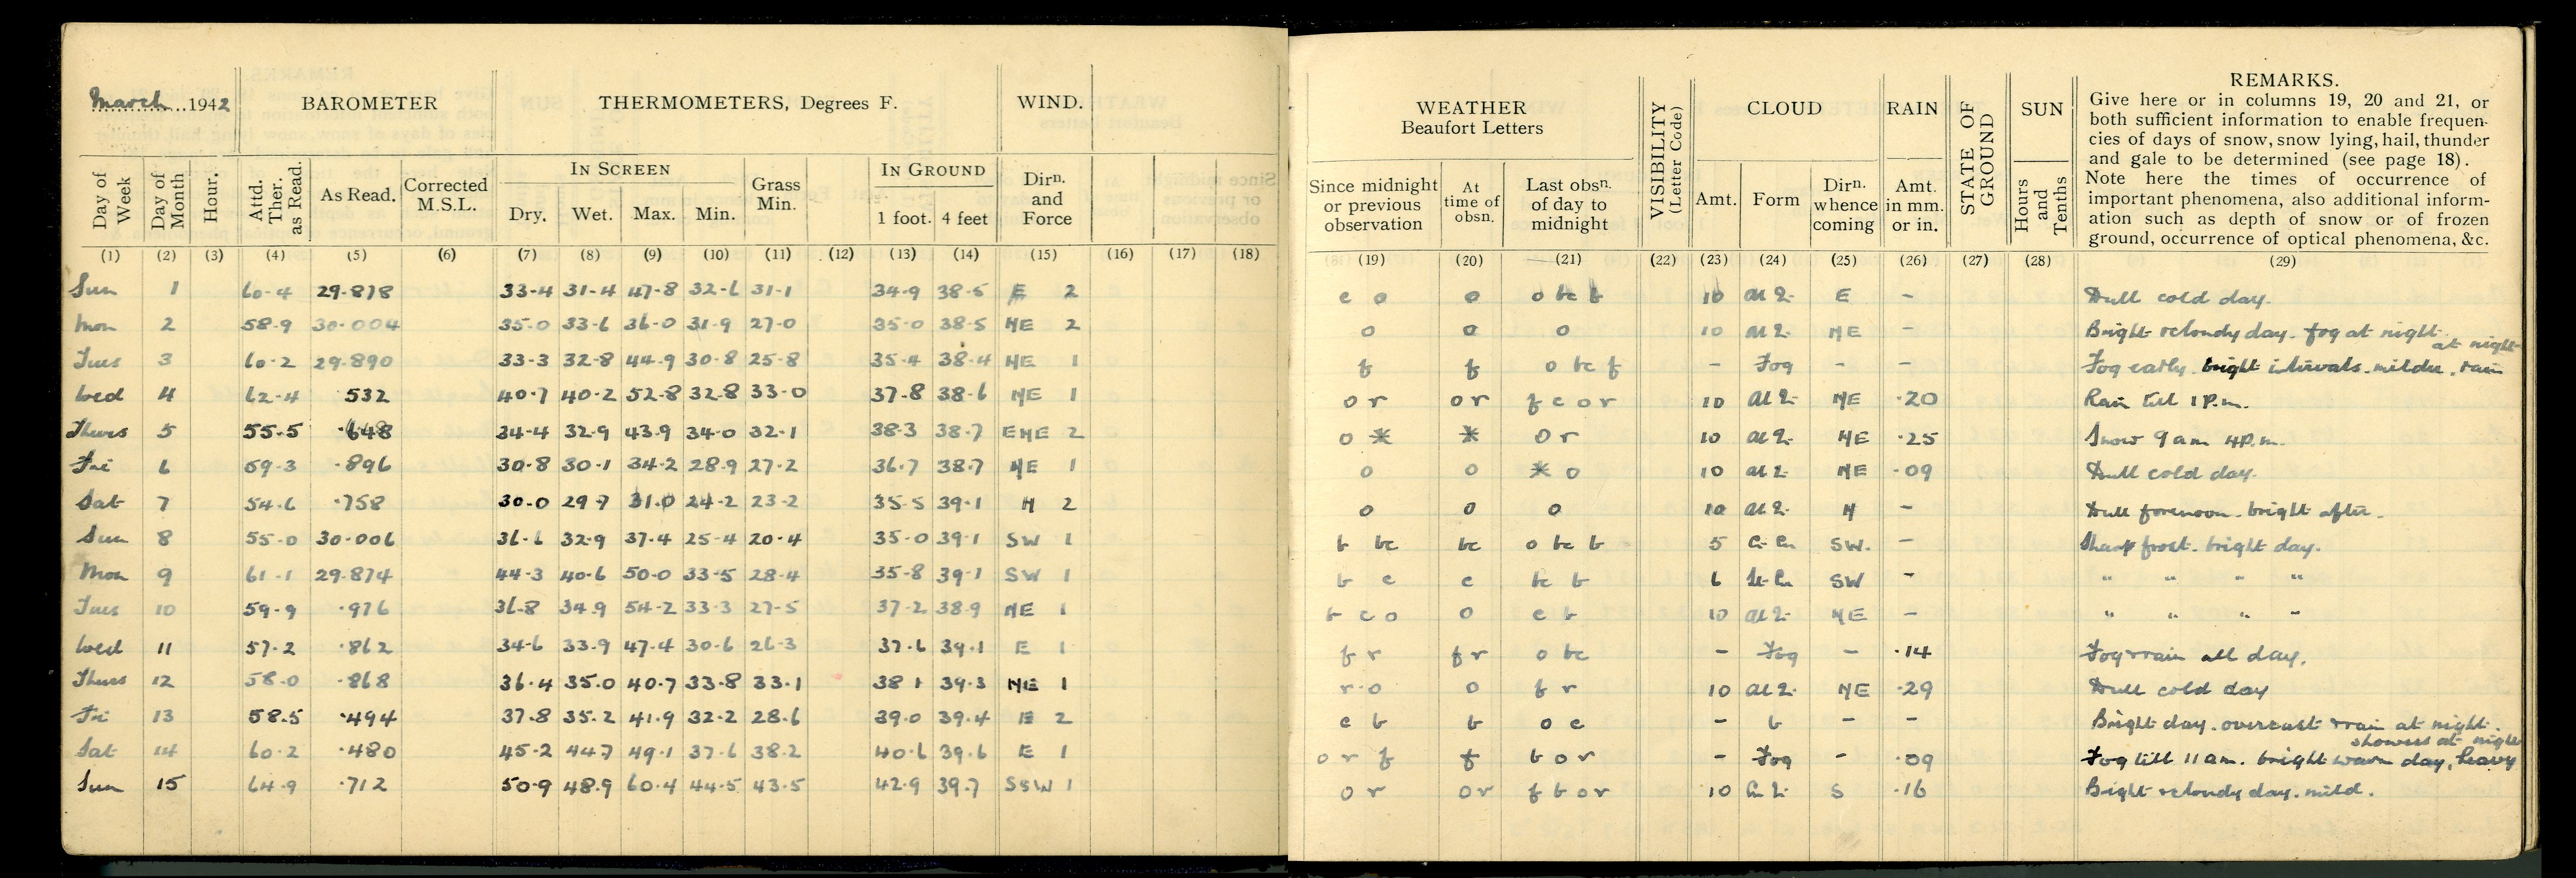 March 1942
BAROMETER
THERMOMETERS, Degrees F.
WIND.
Day of Week
Day of Month
Hour.
Attd. Ther. as Read.
As Read.
Corrected M.S.L.
IN SCREEN
Dry. Wet. Max. Min.
Grass Min.
IN GROUND
1 foot. 4 feet
Dirn. and Force
(1) (2) (3) (4) (5) (6) (7) (8) (9) (10) (11) (12) (13) (14) (15) (16) (17) (18)
Sun 1 60.4 29.878 33.4 31.4 47.8 32.6 31.1 34.9 38.5 E 2
Mon 2 58.9 30.004 35.0 33.6 36.0 31.9 27.0 35.0 38.5 NE 2
Tues 3 60.2 29.890 33.3 32.8 44.9 30.8 25.8 35.4 38.4 NE 1
Wed 4 62.4 532 40.7 40.2 52.8 32.8 33.0 37.8 38.6 NE 1
Thurs 5 55.5 .648 34.4 32.9 43.9 34.0 32.1 38.3 38.7 ENE 2
Fri 6 59.3 .896 30.8 30.1 34.2 28.9 27.2 36.7 38.7 NE 1
Sat 7 54.6 .758 30.0 29.7 31.0 24.2 23.2 35.5 39.1 N 2
Sun 8 55.0 30.006 36.6 32.9 37.4 25.4 20.4 35.0 39.1 SW 1
Mon 9 61.1 29.874 44.3 40.6 50.0 33.5 28.4 35.8 39.1 SW 1
Tues 10 59.9 .976 36.8 34.9 54.2 33.3 27.5 37.2 38.9 NE 1
Wed 11 57.2 .862 34.6 33.9 47.4 30.6 26.3 37.6 39.1 E 1
Thurs 12 58.0 .868 36.4 35.0 40.7 33.8 33.1 38.1 39.3 NE 1
Fri 13 58.5 .494 37.8 35.2 41.9 32.2 28.6 39.0 39.4 E 2
Sat 14 60.2 .480 45.2 44.7 49.1 37.6 38.2 40.6 39.6 E 1
Sun 15 64.9 .712 50.9 48.9 60.4 44.5 43.5 42.9 39.7 SSW 1
WEATHER
Beaufort Letters
Since midnight or previous observation
At time of obsn.
Last obsn. of day to midnight
VISIBILITY (Letter Code)
CLOUD
Amt. Form Dirn. whence coming
RAIN
Amt. in mm. or in.
STATE OF GROUND
SUN
Hours and Tenths
REMARKS.
Give here or in columns 19, 20 and 21, or
both sufficient information to enable frequen-
cies of days of snow, snow lying, hail, thunder
and gale to be determined (see page 18).
Note here the times of occurrence of
important phenomena, also additional inform-
ation such as depth of snow or of frozen
ground, occurrence of optical phenomena, &c.
(19) (20) (21) (22) (23) (24) (25) (26) (27) (28) (29)
c o o o bc b 10 E - Dull cold day.
o o o 10 NE - Bright + cloudy day. fog at night.
f f o bc f - Fog - - Fog early. bright intervals. milder. rain at night
o r o r f c o r 10 NE .20 Rain till 1 P.m.
o * * o r 10 NE .25 Snow 9 am 4 P.m.
o o * o 10 NE .09 Dull cold day.
o o o 10 N - Dull forenoon. bright after.
b bc bc o bc b 5 SW. - Sharp frost. bright day.
b c c bc b 6 SW - " " " "
b c o o c b 10 NE - " " " "
f r f r o bc - Fog - .14 Fog + rain all day.
r o o f r 10 NE .29 Dull cold day
c b b o c - b - - Bright day. overcast + rain at night.
o r f f b o r - Fog - .09 Fog till 11 am. bright warm day, heavy showers at night
o r o r f b o r 10 S .16 Bright + cloudy day. mild.